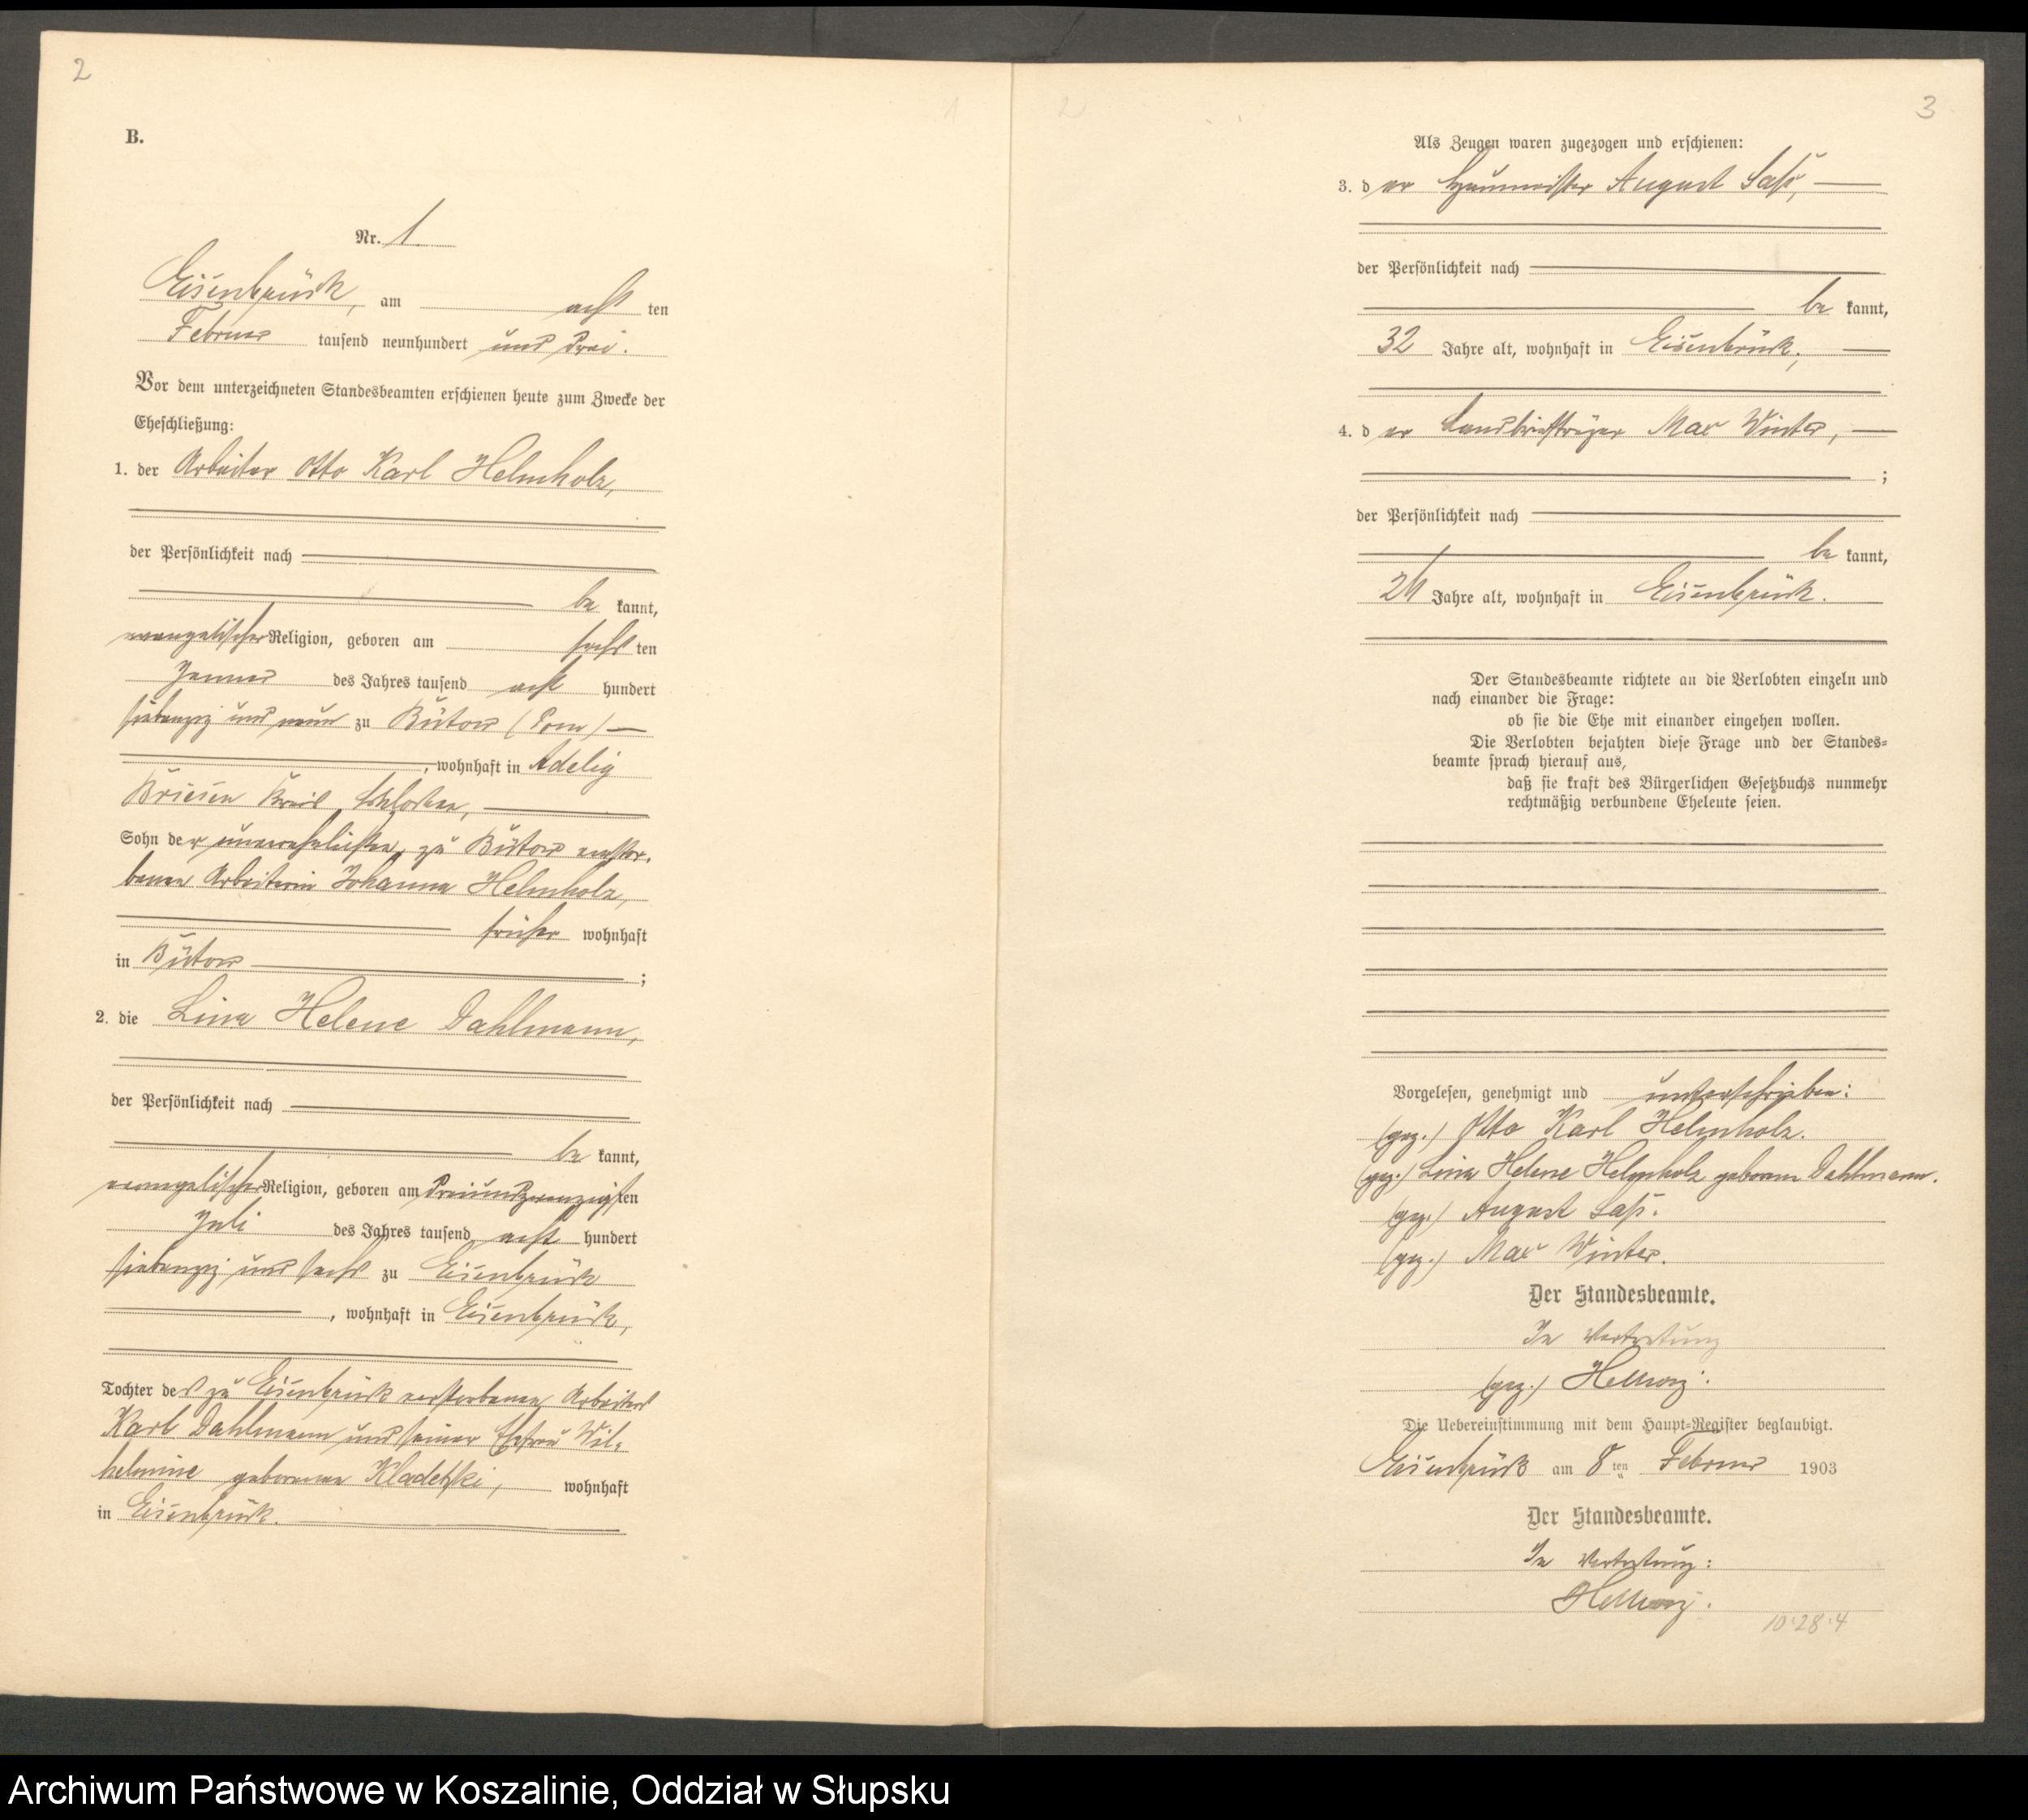 2
B.
Nr. 1
Eisenbrück, am acht ten
Februar tausend neunhundert und drei.
Vor dem unterzeichneten Standesbeamten erschienen heute zum Zwecke der
Eheschließung:
1. der Arbeiter Otto Karl Helmholz,
der Persönlichkeit nach
be kannt,
evangelischer Religion, geboren am sechs ten
Januar des Jahres tausend acht hundert
siebenzig und neun zu Bütow (Pom)
, wohnhaft in Adelig
Briesen Kreis Schlochau,
Sohn der unverehelichten, zu Bütow verstor-
benen Arbeiterin Johanna Helmholz,
früher wohnhaft
in Bütow ;
2. die Lina Helene Dahlmann,
der Persönlichkeit nach
be kannt,
evangelischer Religion, geboren am dreiundzwanzigsten
Juli des Jahres tausend acht hundert
siebenzig und sechs zu Eisenbrück
, wohnhaft in Eisenbrück,
Tochter des zu Eisenbrück verstorbenen Arbeiters
Karl Dahlmann und seiner Ehefrau Wil-
helmine geborenen Kladetzki, wohnhaft
in Eisenbrück.
3
Als Zeugen waren zugezogen und erschienen:
3. der August Saß,
der Persönlichkeit nach
be kannt,
32 Jahre alt, wohnhaft in Eisenbrück,
4. der Landbriefträger Max Winter,
;
der Persönlichkeit nach
be kannt,
24 Jahre alt, wohnhaft in Eisenbrück.
Der Standesbeamte richtete an die Verlobten einzeln und
nach einander die Frage:
ob sie die Ehe mit einander eingehen wollen.
Die Verlobten bejahten diese Frage und der Standes-
beamte sprach hierauf aus,
daß sie kraft des Bürgerlichen Gesetzbuchs nunmehr
rechtmäßig verbundene Eheleute seien.
Vorgelesen, genehmigt und unterschrieben:
(gez.) Otto Karl Helmholz.
(gez.) Lina Helene Helmholz geborene Dahlmann.
(gez.) August Saß.
(gez.) Max Winter.
Der Standesbeamte.
In Vertretung
(gez.) Hellwig.
Die Uebereinstimmung mit dem Haupt-Register beglaubigt.
Eisenbrück am 8 ten Februar 1903
Der Standesbeamte.
In Vertretung:
Hellwig.
10.28.4
Archiwum Państwowe w Koszalinie, Oddział w Słupsku